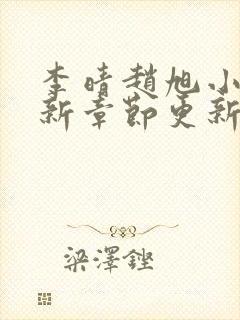 李晴趙旭小
新章節更新
梁澤鏗